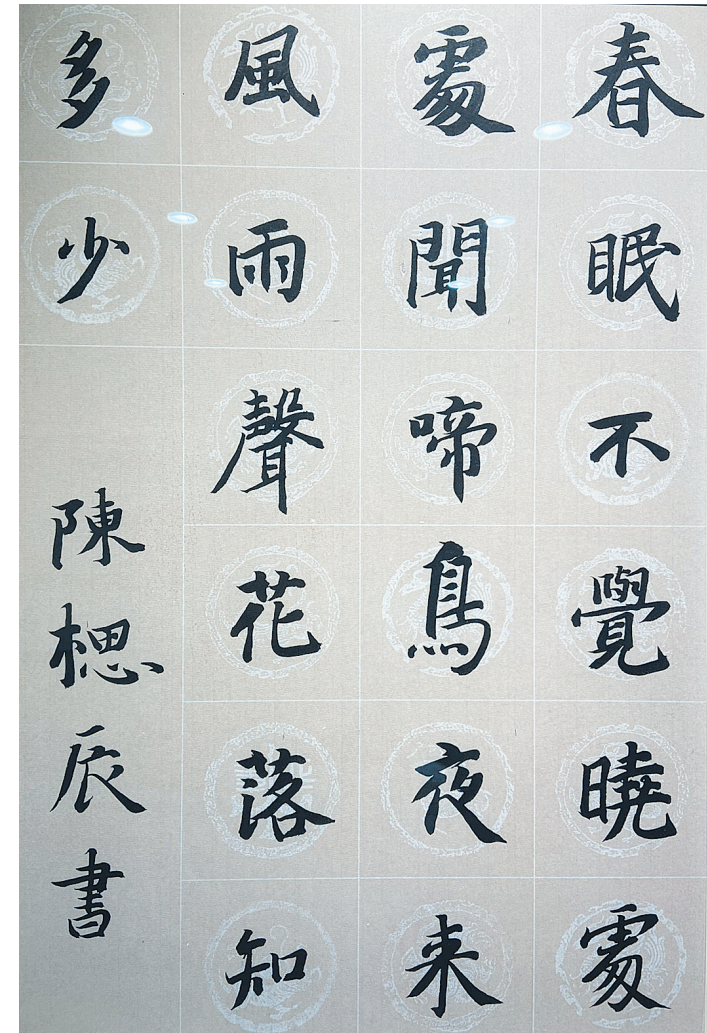 春眠不覺曉處
處聞啼鳥夜来
風雨聲花落知
多少
陳楒辰書